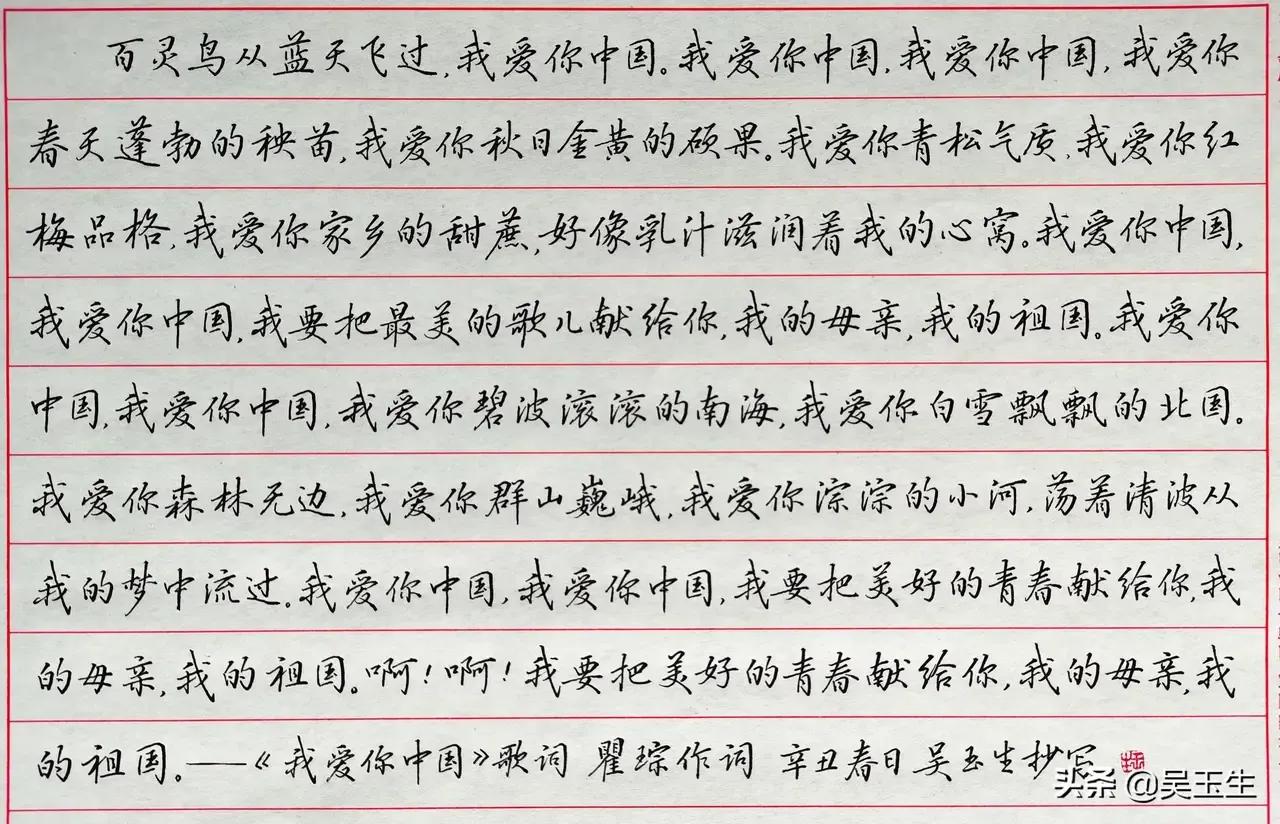 百灵鸟从蓝天飞过,我爱你中国。我爱你中国,我爱你中国,我爱你
春天蓬勃的秧苗,我爱你秋日金黄的硕果。我爱你青松气质,我爱你红
梅品格,我爱你家乡的甜蔗,好像乳汁滋润着我的心窝。我爱你中国,
我爱你中国,我要把最美的歌儿献给你,我的母亲,我的祖国。我爱你
中国,我爱你中国,我爱你碧波滚滚的南海,我爱你白雪飘飘的北国。
我爱你森林无边,我爱你群山巍峨,我爱你淙淙的小河,荡着清波从
我的梦中流过。我爱你中国,我爱你中国,我要把美好的青春献给你,我
的母亲,我的祖国。啊!啊!我要把美好的青春献给你,我的母亲,我
的祖国。——《我爱你中国》歌词 瞿琮作词 辛丑春日吴玉生抄写
头条 @吴玉生